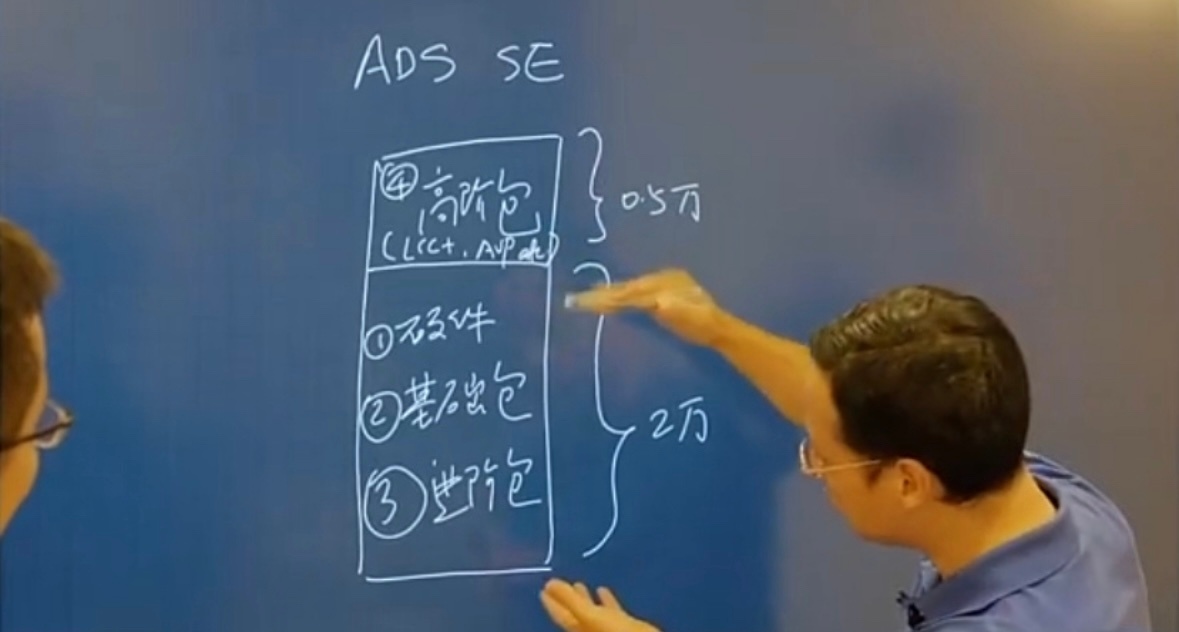 ADS SE
④ 高阶包
0.5万
(LCC+, AVP etc)
① 硬件
② 基础包
2万
③ 进阶包